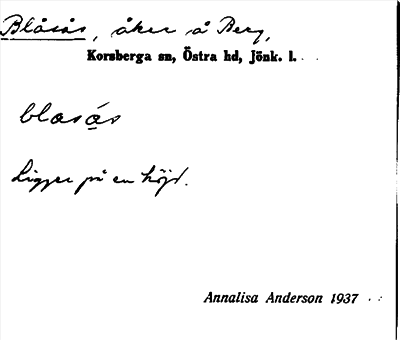 Blåsås, åker å Berg,
Korsberga sn, Östra hd, Jönk. l.
blasás
Ligger på en höjd.
Annalisa Anderson 1937